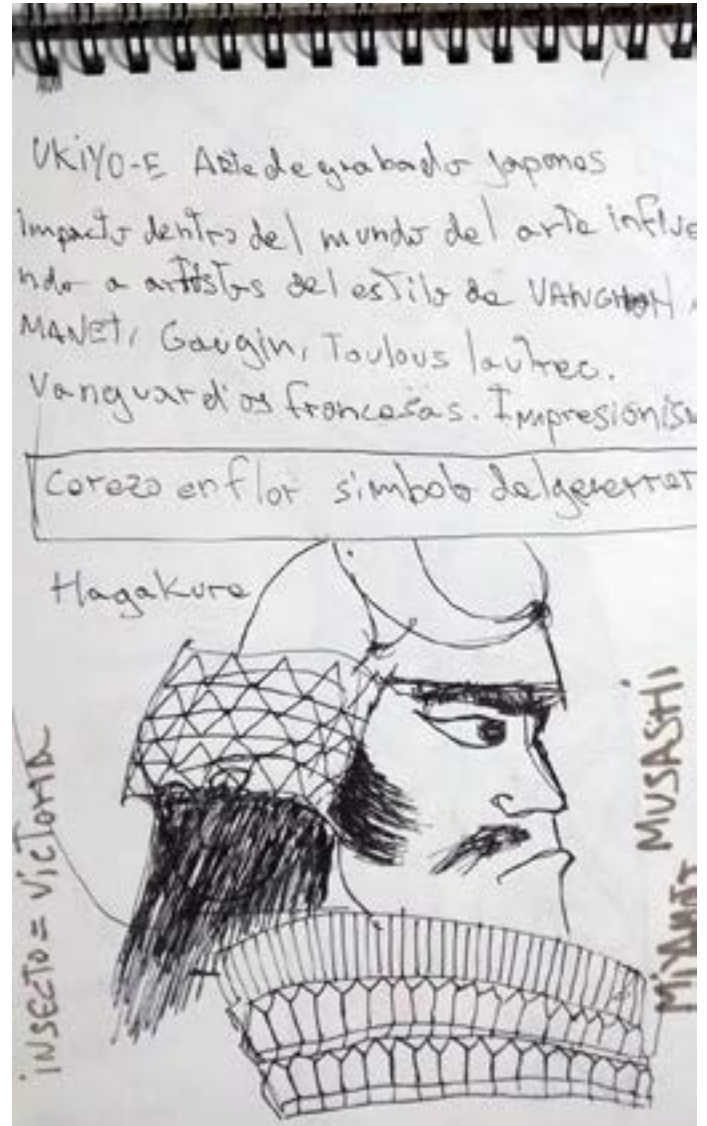 UKIYO-E Arte de grabado Japones
Impacto dentro del mundo del arte influe
ndo a artistas del estilo de VANGHOH,
MANET, Gaugin, Toulous lautrec.
Vanguardias francesas. Impresionism
Cerezo en flor simbolo del guerrer
Hagakure
INSECTO = VICTORIA
MUSASHI
MIYAMOT